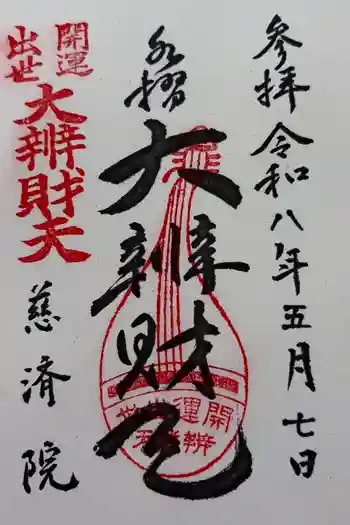 参拝 令和八年五月七日
水摺
大辨財天
開運
出世
大辨財天
慈済院
開運出世